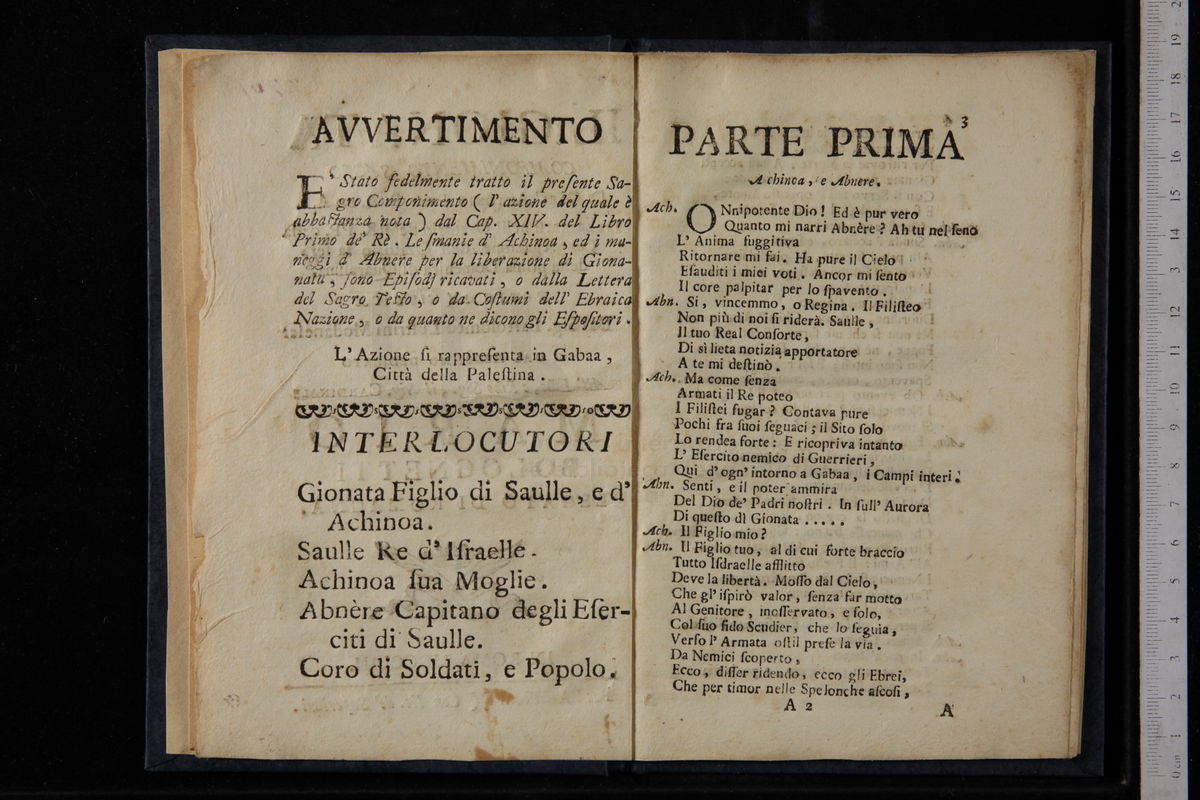 AVVERTIMENTO
E' Stato fedelmente tratto il preſente Sa-
gro Componimento ( l' azione del quale è
abbaſtanza nota ) dal Cap. XIV. del Libro
Primo de' Rè . Le ſmanie d' Achinoa , ed i ma-
neggi d' Abnere per la liberazione di Giona-
nata , ſono Epiſodj ricavati , o dalla Lettera
del Sagro Teſto , o da Coſtumi dell' Ebraica
Nazione , o da quanto ne dicono gli Eſpoſitori .
L' Azione ſi rappreſenta in Gabaa ,
Città della Paleſtina .
INTERLOCUTORI
Gionata Figlio di Saulle, e d'
Achinoa.
Saulle Re d' Iſraelle.
Achinoa ſua Moglie.
Abnère Capitano degli Eſer-
citi di Saulle.
Coro di Soldati, e Popolo.
3
PARTE PRIMA
Achinoa , e Abnere.
Ach. ONnipotente Dio ! Ed è pur vero
Quanto mi narri Abnère ? Ah tu nel ſeno
L' Anima fuggitiva
Ritornare mi fai. Ha pure il Cielo
Eſauditi i miei voti . Ancor mi ſento
Il core palpitar per lo ſpavento .
Abn. Si , vincemmo, o Regina . Il Filiſteo
Non più di noi ſi riderà. Saulle ,
Il tuo Real Conſorte,
Di sì lieta notizia apportatore
A te mi deſtinò .
Ach. Ma come ſenza
Armati il Re poteo
I Filiſtei fugar ? Contava pure
Pochi fra ſuoi ſeguaci ; il Sito ſolo
Lo rendea forte : E ricopriva intanto
L' Eſercito nemico di Guerrieri ,
Qui d' ogn' intorno a Gabaa , i Campi interi.
Abn. Senti , e il poter ammira
Del Dio de' Padri noſtri . In ſull' Aurora
Di queſto dì Gionata . . . . .
Ach. Il Figlio mio ?
Abn. Il Figlio tuo, al di cui forte braccio
Tutto Iſdraelle afflitto
Deve la libertà. Moſſo dal Cielo,
Che gl' iſpirò valor, ſenza far motto
Al Genitore , inoſſervato , e ſolo,
Col ſuo fido Scudier, che lo ſeguia,
Verſo l' Armata oſtil preſe la via .
Da Nemici ſcoperto ,
Ecco , diſſer ridendo, ecco gli Ebrei,
Che per timor nelle Spelonche aſcoſi ,
A 2
A